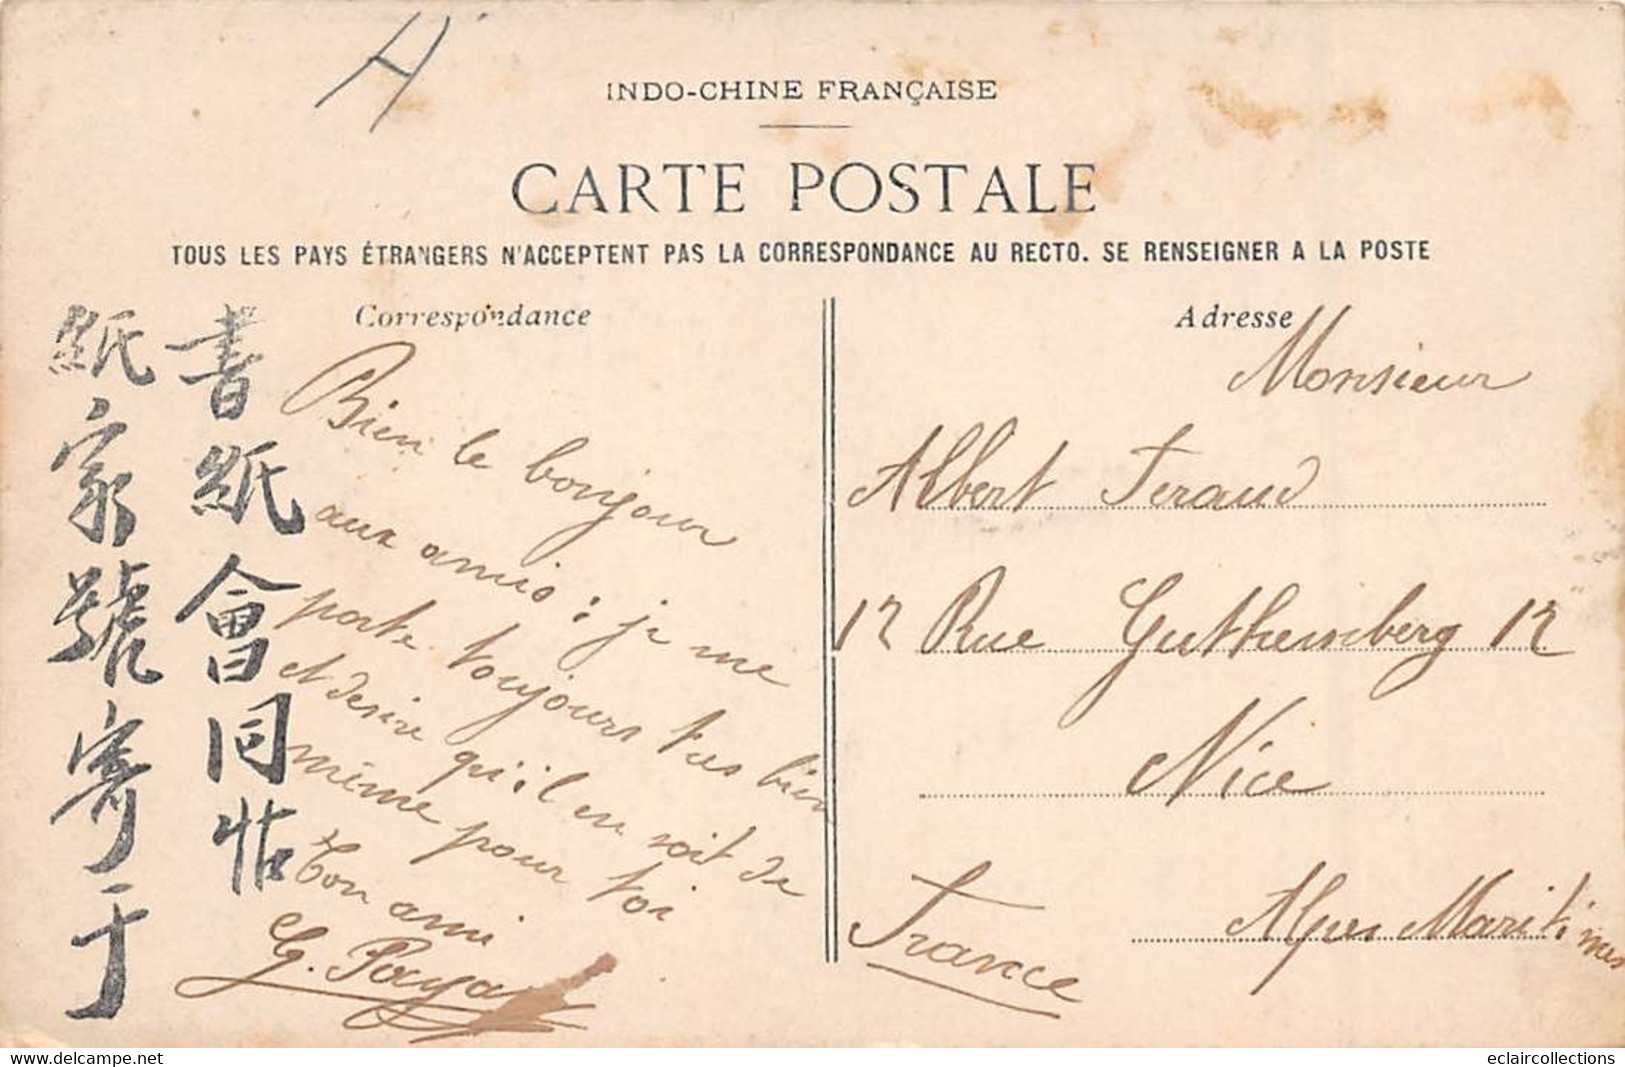 H
INDO-CHINE FRANÇAISE
CARTE POSTALE
TOUS LES PAYS ÉTRANGERS N'ACCEPTENT PAS LA CORRESPONDANCE AU RECTO. SE RENSEIGNER A LA POSTE
Correspondance
書紙會同帖
紙家號寄于
Bien le bonjour
aux amis : je me
porte toujours tres bien
et desire qu'il en soit de
même pour toi
Ton ami
G.
Adresse
Monsieur
Albert Feraud
12 Rue Guthemberg 12
Nice
Alpes Maritimes
France
www.delcampe.net
eclaircollections